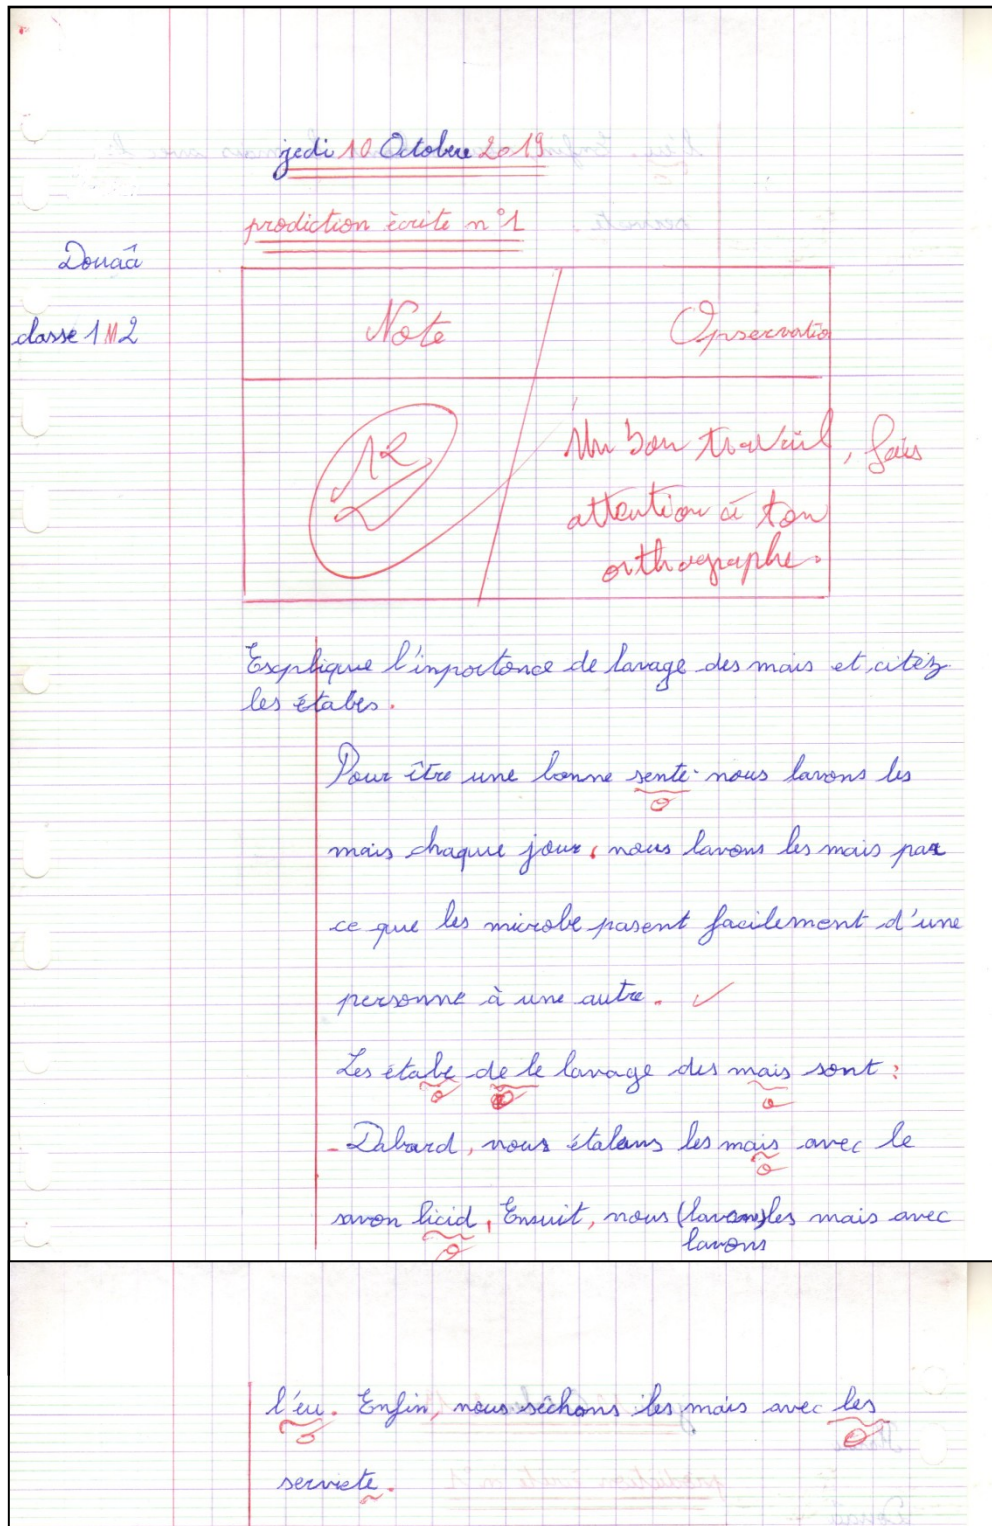 jedi 10 Octobre 2019
prodiction écrite n°1
Douaâ
classe 1M2
Note
Opservatio
12
Un bon travail, fais
attention à ton
orthographe.
Esxplique l'inportonce de lavage des mais et, citéz
les étabes.
Pour être une bonne sente. nous lavons les
mais chaque jour, nous lavons les mais par
ce que les microbe pasent facilement d'une
personne à une autre.
Les étabe de le lavage des mais sont :
- Dabard, nous étalons les mais avec le
savon licid, Ensuit, nous (lavons) les mais avec
lavons
l'éu. Enfin, nous séchons les mais avec les
serviete.